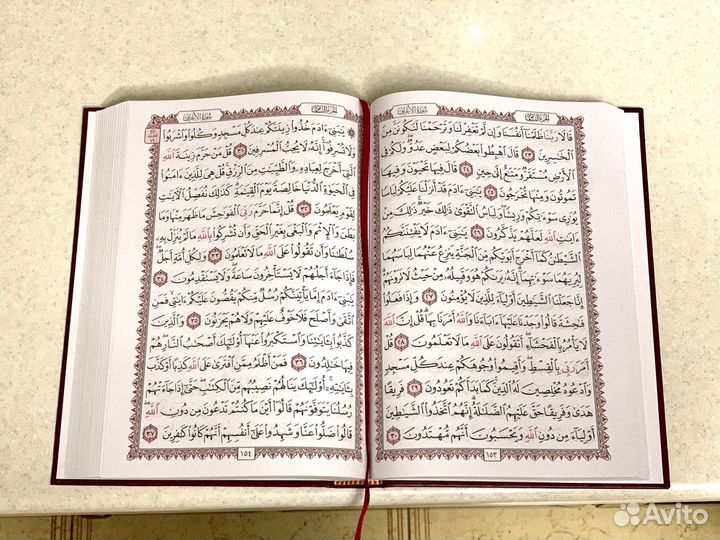 الجزء الثامن
سورة الأعراف
قَالَا رَبَّنَا ظَلَمْنَآ أَنفُسَنَا وَإِن لَّمْ تَغْفِرْ لَنَا وَتَرْحَمْنَا لَنَكُونَنَّ مِنَ
ٱلْخَٰسِرِينَ ٢٣ قَالَ ٱهْبِطُوا۟ بَعْضُكُمْ لِبَعْضٍ عَدُوٌّ وَلَكُمْ فِى
ٱلْأَرْضِ مُسْتَقَرٌّ وَمَتَٰعٌ إِلَىٰ حِينٍ ٢٤ قَالَ فِيهَا تَحْيَوْنَ وَفِيهَا
تَمُوتُونَ وَمِنْهَا تُخْرَجُونَ ٢٥ يَٰبَنِىٓ ءَادَمَ قَدْ أَنزَلْنَا عَلَيْكُمْ لِبَاسًا
يُوَٰرِى سَوْءَٰتِكُمْ وَرِيشًا وَلِبَاسُ ٱلتَّقْوَىٰ ذَٰلِكَ خَيْرٌ ذَٰلِكَ مِنْ
ءَايَٰتِ ٱللَّهِ لَعَلَّهُمْ يَذَّكَّرُونَ ٢٦ يَٰبَنِىٓ ءَادَمَ لَا يَفْتِنَنَّكُمُ
ٱلشَّيْطَٰنُ كَمَآ أَخْرَجَ أَبَوَيْكُم مِّنَ ٱلْجَنَّةِ يَنزِعُ عَنْهُمَا لِبَاسَهُمَا
لِيُرِيَهُمَا سَوْءَٰتِهِمَآ إِنَّهُۥ يَرَىٰكُمْ هُوَ وَقَبِيلُهُۥ مِنْ حَيْثُ لَا تَرَوْنَهُمْ
إِنَّا جَعَلْنَا ٱلشَّيَٰطِينَ أَوْلِيَآءَ لِلَّذِينَ لَا يُؤْمِنُونَ ٢٧ وَإِذَا فَعَلُوا۟
فَٰحِشَةً قَالُوا۟ وَجَدْنَا عَلَيْهَآ ءَابَآءَنَا وَٱللَّهُ أَمَرَنَا بِهَا قُلْ إِنَّ ٱللَّهَ
لَا يَأْمُرُ بِٱلْفَحْشَآءِ أَتَقُولُونَ عَلَى ٱللَّهِ مَا لَا تَعْلَمُونَ ٢٨ قُلْ
أَمَرَ رَبِّى بِٱلْقِسْطِ وَأَقِيمُوا۟ وُجُوهَكُمْ عِندَ كُلِّ مَسْجِدٍ
وَٱدْعُوهُ مُخْلِصِينَ لَهُ ٱلدِّينَ كَمَا بَدَأَكُمْ تَعُودُونَ ٢٩ فَرِيقًا
هَدَىٰ وَفَرِيقًا حَقَّ عَلَيْهِمُ ٱلضَّلَٰلَةُ إِنَّهُمُ ٱتَّخَذُوا۟ ٱلشَّيَٰطِينَ
أَوْلِيَآءَ مِن دُونِ ٱللَّهِ وَيَحْسَبُونَ أَنَّهُم مُّهْتَدُونَ ٣٠
١٥٣
الجزء الثامن
سورة الأعراف
يَٰبَنِىٓ ءَادَمَ خُذُوا۟ زِينَتَكُمْ عِندَ كُلِّ مَسْجِدٍ وَكُلُوا۟ وَٱشْرَبُوا۟
وَلَا تُسْرِفُوٓا۟ إِنَّهُۥ لَا يُحِبُّ ٱلْمُسْرِفِينَ ٣١ قُلْ مَنْ حَرَّمَ زِينَةَ ٱللَّهِ
ٱلَّتِىٓ أَخْرَجَ لِعِبَادِهِۦ وَٱلطَّيِّبَٰتِ مِنَ ٱلرِّزْقِ قُلْ هِىَ لِلَّذِينَ ءَامَنُوا۟
فِى ٱلْحَيَوٰةِ ٱلدُّنْيَا خَالِصَةً يَوْمَ ٱلْقِيَٰمَةِ كَذَٰلِكَ نُفَصِّلُ ٱلْءَايَٰتِ
لِقَوْمٍ يَعْلَمُونَ ٣٢ قُلْ إِنَّمَا حَرَّمَ رَبِّىَ ٱلْفَوَٰحِشَ مَا ظَهَرَ مِنْهَا وَمَا
بَطَنَ وَٱلْإِثْمَ وَٱلْبَغْىَ بِغَيْرِ ٱلْحَقِّ وَأَن تُشْرِكُوا۟ بِٱللَّهِ مَا لَمْ يُنَزِّلْ بِهِۦ
سُلْطَٰنًا وَأَن تَقُولُوا۟ عَلَى ٱللَّهِ مَا لَا تَعْلَمُونَ ٣٣ وَلِكُلِّ أُمَّةٍ أَجَلٌ
فَإِذَا جَآءَ أَجَلُهُمْ لَا يَسْتَأْخِرُونَ سَاعَةً وَلَا يَسْتَقْدِمُونَ ٣٤
يَٰبَنِىٓ ءَادَمَ إِمَّا يَأْتِيَنَّكُمْ رُسُلٌ مِّنكُمْ يَقُصُّونَ عَلَيْكُمْ ءَايَٰتِى فَمَنِ
ٱتَّقَىٰ وَأَصْلَحَ فَلَا خَوْفٌ عَلَيْهِمْ وَلَا هُمْ يَحْزَنُونَ ٣٥ وَٱلَّذِينَ
كَذَّبُوا۟ بِـَٔايَٰتِنَا وَٱسْتَكْبَرُوا۟ عَنْهَآ أُو۟لَٰٓئِكَ أَصْحَٰبُ ٱلنَّارِ هُمْ
فِيهَا خَٰلِدُونَ ٣٦ فَمَنْ أَظْلَمُ مِمَّنِ ٱفْتَرَىٰ عَلَى ٱللَّهِ كَذِبًا أَوْ كَذَّبَ
بِـَٔايَٰتِهِۦٓ أُو۟لَٰٓئِكَ يَنَالُهُمْ نَصِيبُهُم مِّنَ ٱلْكِتَٰبِ حَتَّىٰٓ إِذَا جَآءَتْهُمْ
رُسُلُنَا يَتَوَفَّوْنَهُمْ قَالُوٓا۟ أَيْنَ مَا كُنتُمْ تَدْعُونَ مِن دُونِ ٱللَّهِ
قَالُوا۟ ضَلُّوا۟ عَنَّا وَشَهِدُوا۟ عَلَىٰٓ أَنفُسِهِمْ أَنَّهُمْ كَانُوا۟ كَٰفِرِينَ ٣٧
١٥٤
Avito